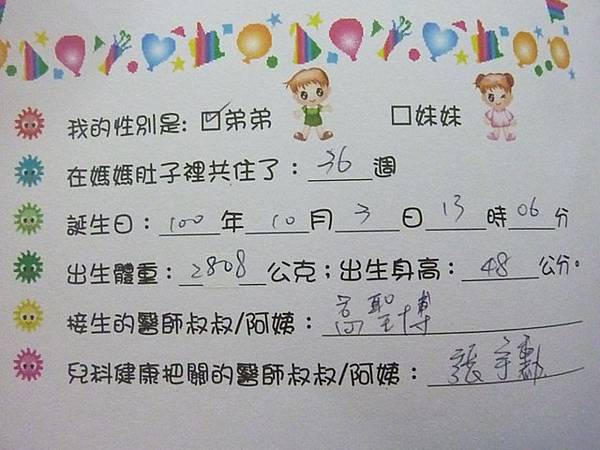 我的性別是: ☑弟弟 □妹妹
在媽媽肚子裡共住了：36週
誕生日：100年10月3日13時06分
出生體重：2808公克；出生身高：48公分。
接生的醫師叔叔/阿姨：高聖博
兒科健康把關的醫師叔叔/阿姨：張宇勳